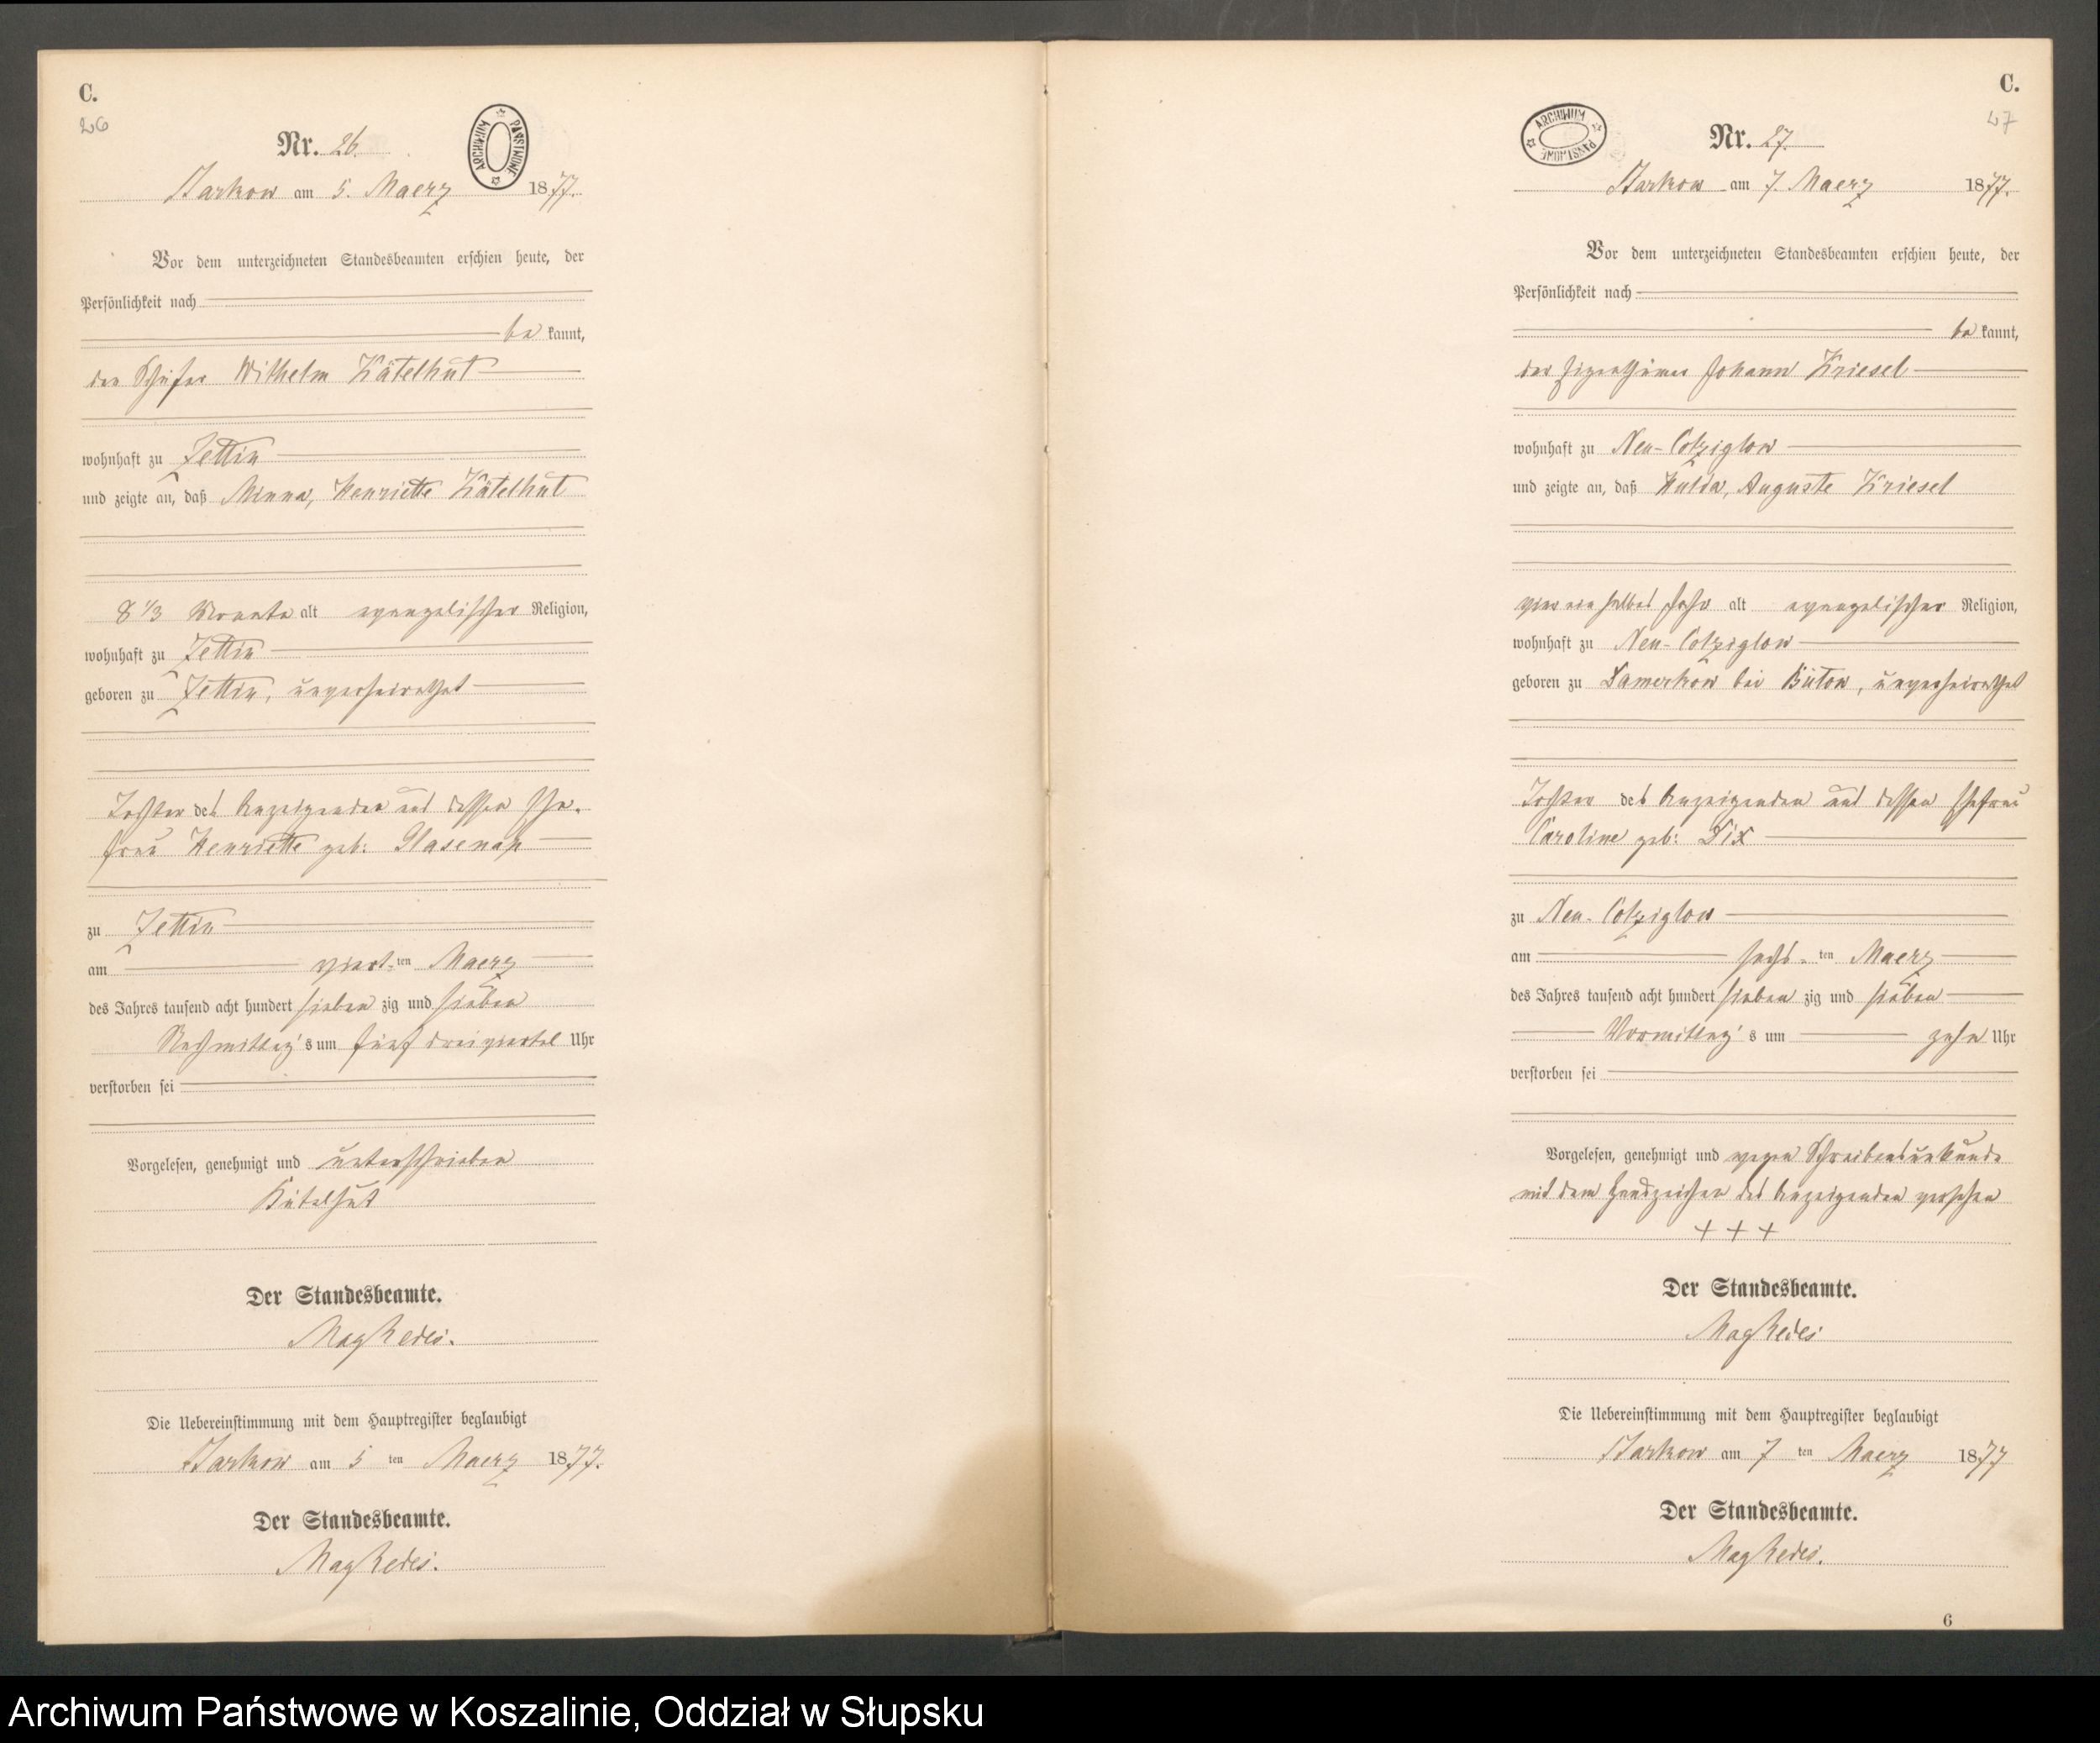 C.
26
Nr. 26.
ARCHIWUM PAŃSTWOWE
Starkow am 5. Maerz 1877.
Vor dem unterzeichneten Standesbeamten erschien heute, der
Persönlichkeit nach
be kannt,
der Schäfer Wilhelm Kätelhut
wohnhaft zu Zettin
und zeigte an, daß Minna, Henriette Kätelhut
8 1/3 Monate alt evangelischer Religion,
wohnhaft zu Zettin
geboren zu Zettin, unverheirathet
Tochter des Anzeigenden und dessen Ehe-
frau Henriette geb: Glasenap
zu Zettin
am viert-ten Maerz
des Jahres tausend acht hundert sieben zig und sieben
Nachmittag's um fünf dreiviertel Uhr
verstorben sei
Vorgelesen, genehmigt und unterschrieben
Kätelhut
Der Standesbeamte.
Die Uebereinstimmung mit dem Hauptregister beglaubigt
Starkow am 5 ten Maerz 1877.
Der Standesbeamte.
C.
27
Nr. 27.
ARCHIWUM PAŃSTWOWE
Starkow am 7. Maerz 1877.
Vor dem unterzeichneten Standesbeamten erschien heute, der
Persönlichkeit nach
be kannt,
der Eigenthümer Johann Kriesel
wohnhaft zu Neu-Colziglow
und zeigte an, daß Hulda, Auguste Kriesel
vier ein halbes Jahr alt evangelischer Religion,
wohnhaft zu Neu-Colziglow
geboren zu Damerkow bei Bütow, unverheirathet
Tochter des Anzeigenden und dessen Ehefrau
Caroline geb: Dix
zu Neu-Colziglow
am sechs-ten Maerz
des Jahres tausend acht hundert sieben zig und sieben
Vormittag's um zehn Uhr
verstorben sei
Vorgelesen, genehmigt und wegen Schreibensunkunde
mit dem Handzeichen des Anzeigenden versehen
+ + +
Der Standesbeamte.
Die Uebereinstimmung mit dem Hauptregister beglaubigt
Starkow am 7 ten Maerz 1877
Der Standesbeamte.
6
Archiwum Państwowe w Koszalinie, Oddział w Słupsku